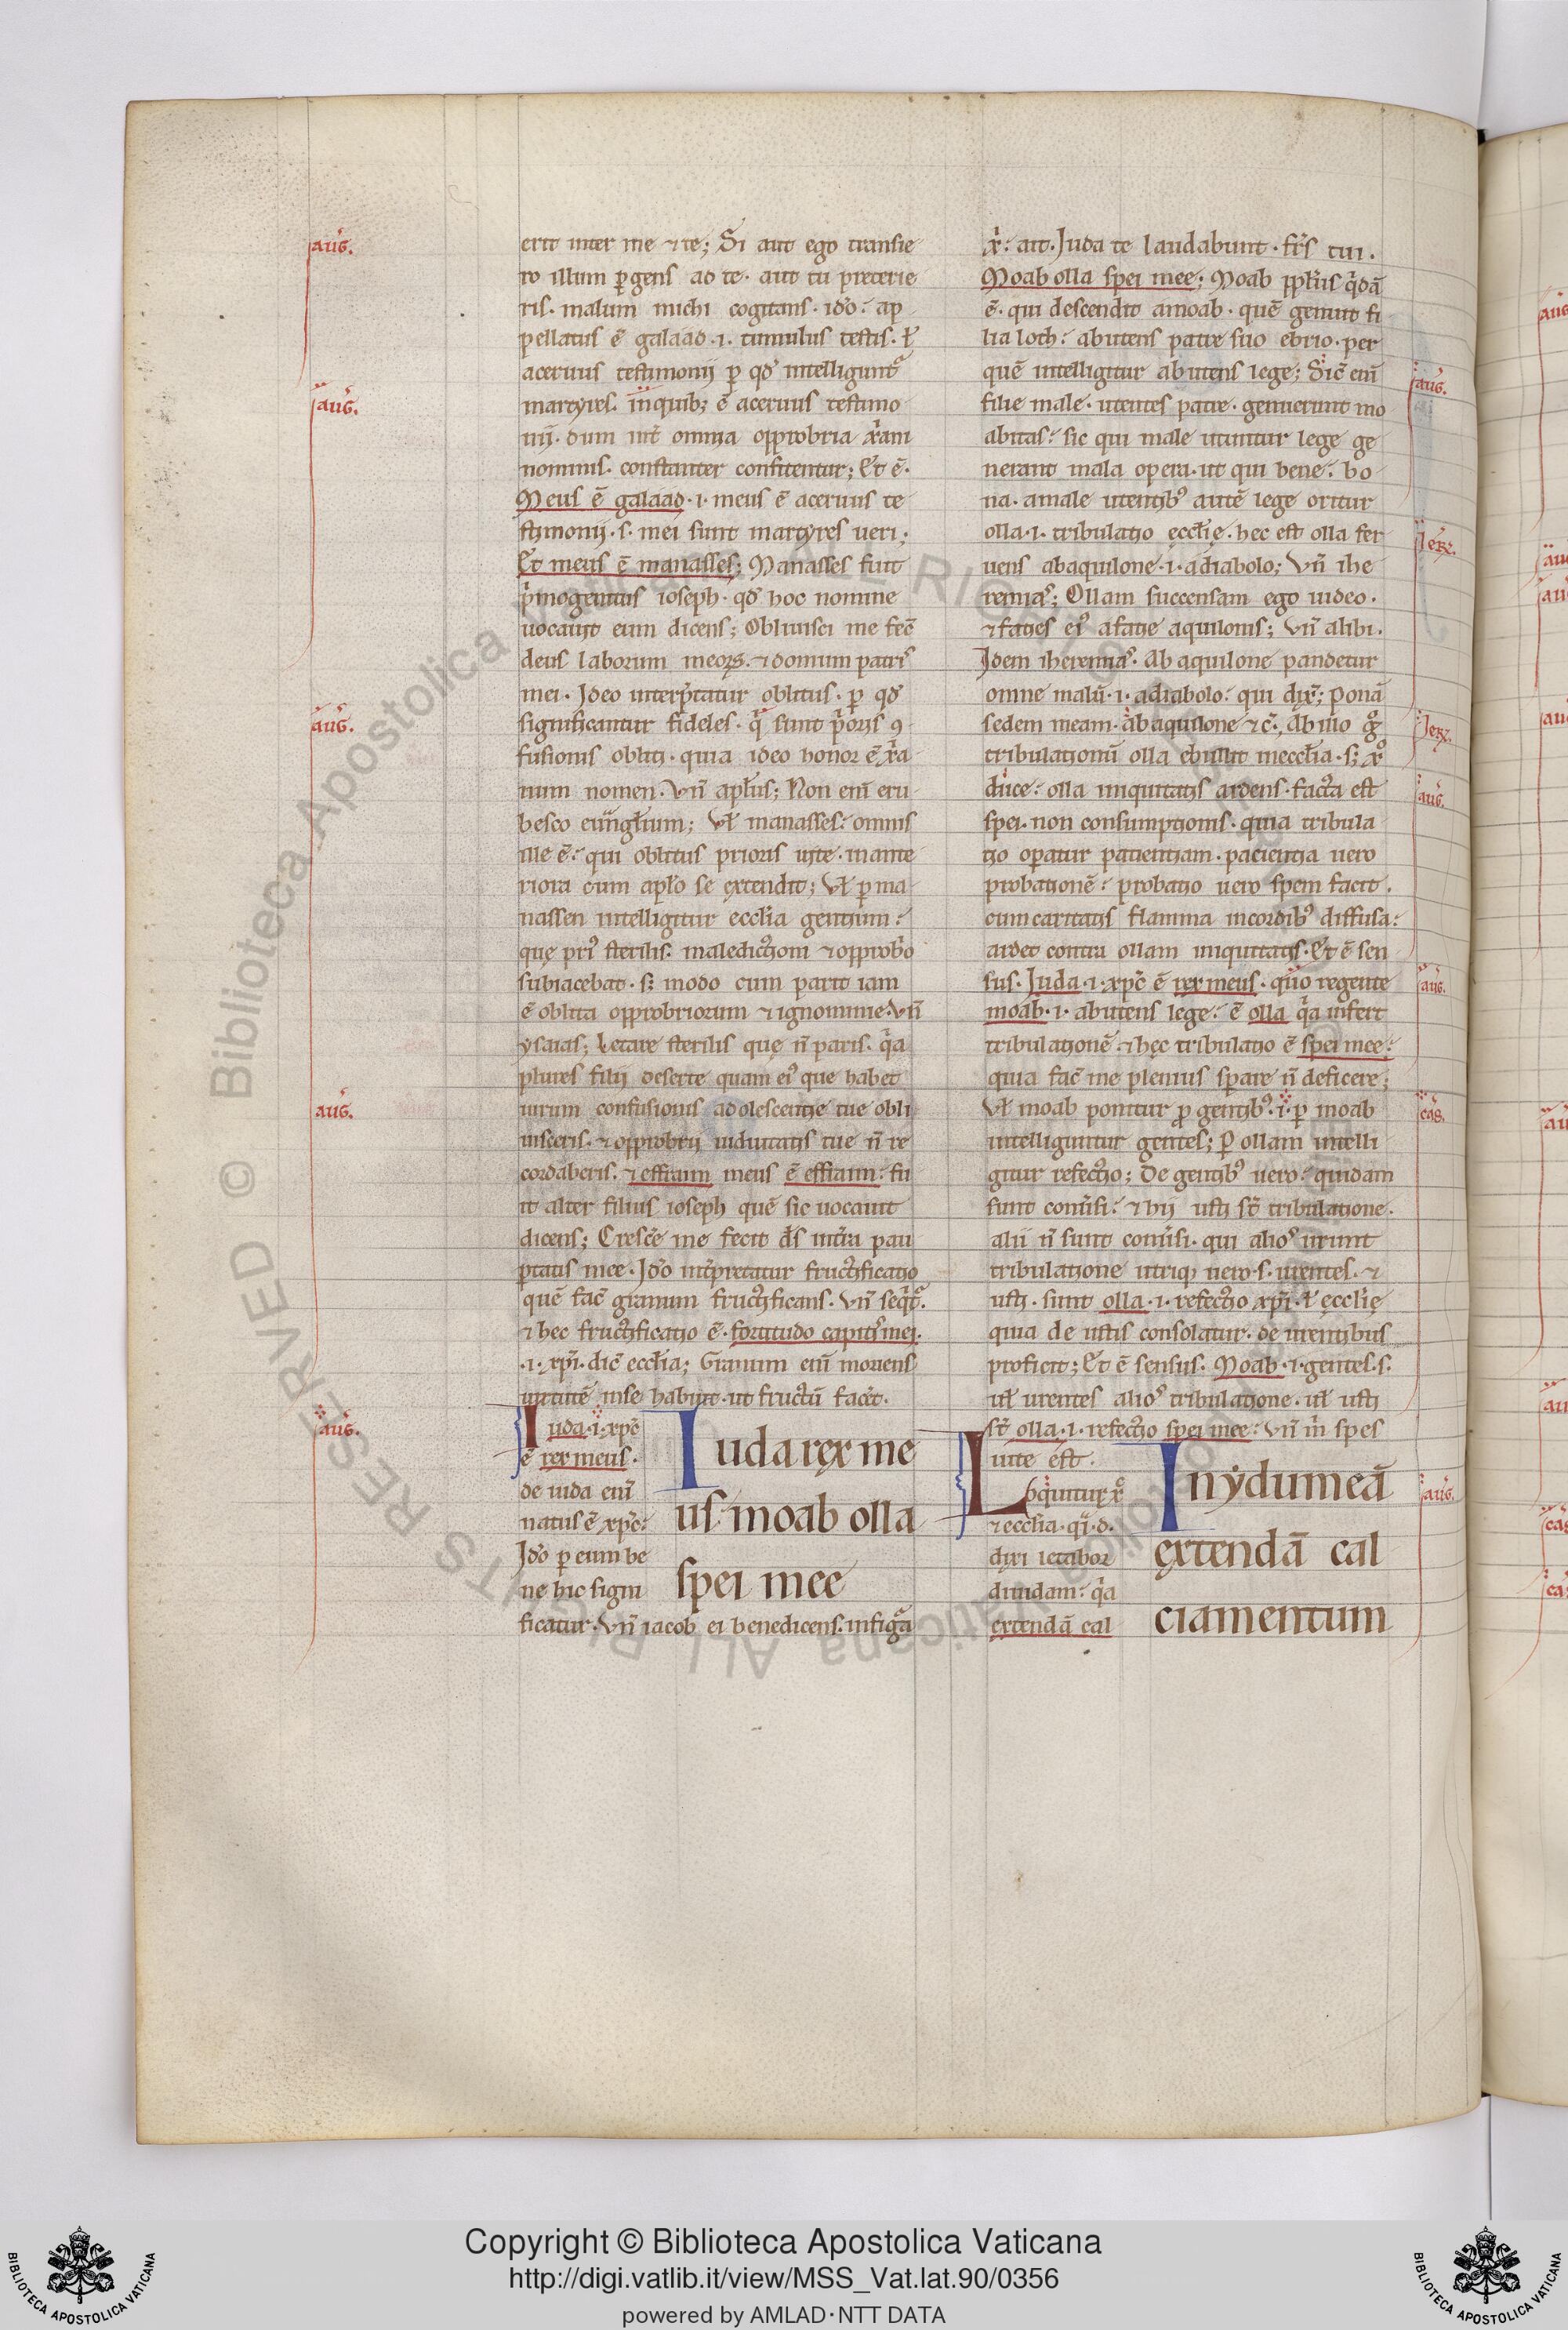 erit inter me ⁊ te; Si aut ego transie
ro illum ꝑgens ad te. aut tu preterie
ris. malum michi cogitans. idõ: ap
pellatus ẽ galaad .i. tumulus testis. ł
aceruus testimonij ꝑ qđ intelligunt᷑
martyres. inquibꝫ ẽ aceruus testimo
nij. dum int̃ omnia opprobria xp̃iani
nominis. constanter confitentur; Et ẽ.
Meus ẽ galaad .i. meus ẽ aceruus te
stimonij .s. mei sunt martyres ueri;
Et meus ẽ manasses; Manasses fuit
p̃mogenitus ioseph. qđ hoc nomine
uocauit eum dicens; Obliuisci me fec̃
deus laborum meoꝝ. ⁊ domum patris
mei. Ideo interp̃tatur oblitus. ꝑ qđ
significantur fideles. q̃ sunt p̃oris ꝯ
fusionis obliti. quia ideo honor ẽ xp̃ia
num nomen. Vñ apl̃us; Non eni᷑ eru
besco euu̅gl̃ium; Vł manasses: omnis
ille ẽ: qui oblitus prioris uite. inante
riora cum apl̃o se extendit; Vł ꝑ ma
nassen intelligitur eccl̃ia gentium:
que pri᷒ sterilis. maledictioni ⁊ opprob̃o
subiacebat. sꝫ modo cum parit iam
ẽ oblita opprobriorum ⁊ ignominie. Vñ
ysaias; Letare sterilis que ñ paris. q̃a
plures filij deserte quam ei᷒ que habet
uirum confusionis adolescentie tue obli
uisceris. ⁊ opprobrij uiduitatis tue ñ re
cordaberis. ⁊ effraim meus ẽ effraim: fu
it alter filius ioseph que̅ sic uocauit
dicens; Cresc̃e me fecit d̃s int̃ra pau
ꝑtatis mee. Idõ int̃pretatur fructificatio
que̅ fac̃ granum fructificans. Vñ seqit᷑.
⁊ hec fructificatio ẽ. fortitudo capitis mei.
.i. xp̃i. dic̃ eccl̃ia; Granum eni᷑ moriens
uirtute̅ inse habuit. ut fructu̅ fac̃et.
Iuda .i. xp̃c
ẽ rex meus.
de iuda eni᷑
natus ẽ xp̃c:
Idõ ꝑ eum be
ne hic signi
ficatur. Vñ iacob ei benedicens. infig᷑a
Iuda rex me
us: moab olla
spei mee
xp̃i: ait. Iuda te laudabunt. fr̃s tui.
Moab olla spei mee; Moab ppl̃us q̃da̅
ẽ. qui descendit amoab. que̅ genuit fi
lia loth: abutens patre suo ebrio. per
que̅ intelligitur abutens lege; Sic̃ eni᷑
filie male. utentes patre. genuerunt mo
abitas: sic qui male utuntur lege ge
nerant mala opera. ut qui bene: bo
na. amale utentib᷒ aute̅ lege oritur
olla .i. tribulatio eccl̃ie. hec est olla fer
uens abaquilone .i. adiabolo; Vñ ihe
remias; Ollam succensam ego uideo.
⁊ facies ei᷒ afacie aquilonis; Vñ alibi.
Idem iheremias. Ab aquilone pandetur
omne malu̅ .i. adiabolo: qui dix̃; pona̅
sedem meam. abaquilone ⁊ c̃. Ab illo g̊
tribulationu̅ olla ebulliit ineccl̃ia. sꝫ xp̊
duce: olla iniquitatis ardens. facta est
spei. non consumptionis. quia tribula
tio oꝑatur patientiam. paciencia uero
probatione̅: probatio uero spem facit.
cum caritatis flamma incordib᷒ diffusa:
ardet contra ollam iniquitatis. Et ẽ sen
sus. Iuda .i. xp̃c ẽ rex meus. quo regente
moab .i. abutens lege: ẽ olla q̃a infert
tribulatione̅. ⁊ hec tribulatio ẽ spei mee:
quia fac̃ me plenius sꝑare ñ deficere;
Vł moab ponitur ꝓ gentib᷒ .i. ꝑ moab
intelliguntur gentes; Ꝑ ollam intelli
gitur refectio; De gentib᷒ uero: quidam
sunt conũsi: ⁊ hij usti st̃ tribulatione.
alii ñ sunt conũsi. qui alios urunt
tribulatione utriqꝫ uero .s. urentes. ⁊
usti. sunt olla .i. refectio xp̃i. ł eccl̃ie
quia de ustis consolatur. de urentibus
proficit; Et ẽ sensus. Moab .i. gentes .s.
uł urentes alios tribulatione. uł usti
st̃ olla .i. refectio spei mee: Vñ m̃ spes
uite est.
Loq̃uitur xp̊
⁊ eccl̃ia. q̃i. d.
dixi letabor
diuidam: q̃a
extenda̅ cal
In ydumea̅
extenda̅ cal
ciamentum
aug̃.
aug̃.
aug̃.
aug̃.
aug̃.
aug̃.
Ierꝫ.
Ierꝫ.
aug̃.
aug̃.
cas̃.
aug̃.
Copyright © Biblioteca Apostolica Vaticana
http://digi.vatlib.it/view/MSS_Vat.lat.90/0356
powered by AMLAD·NTT DATA
BIBLIOTECA APOSTOLICA VATICANA
BIBLIOTECA APOSTOLICA VATICANA